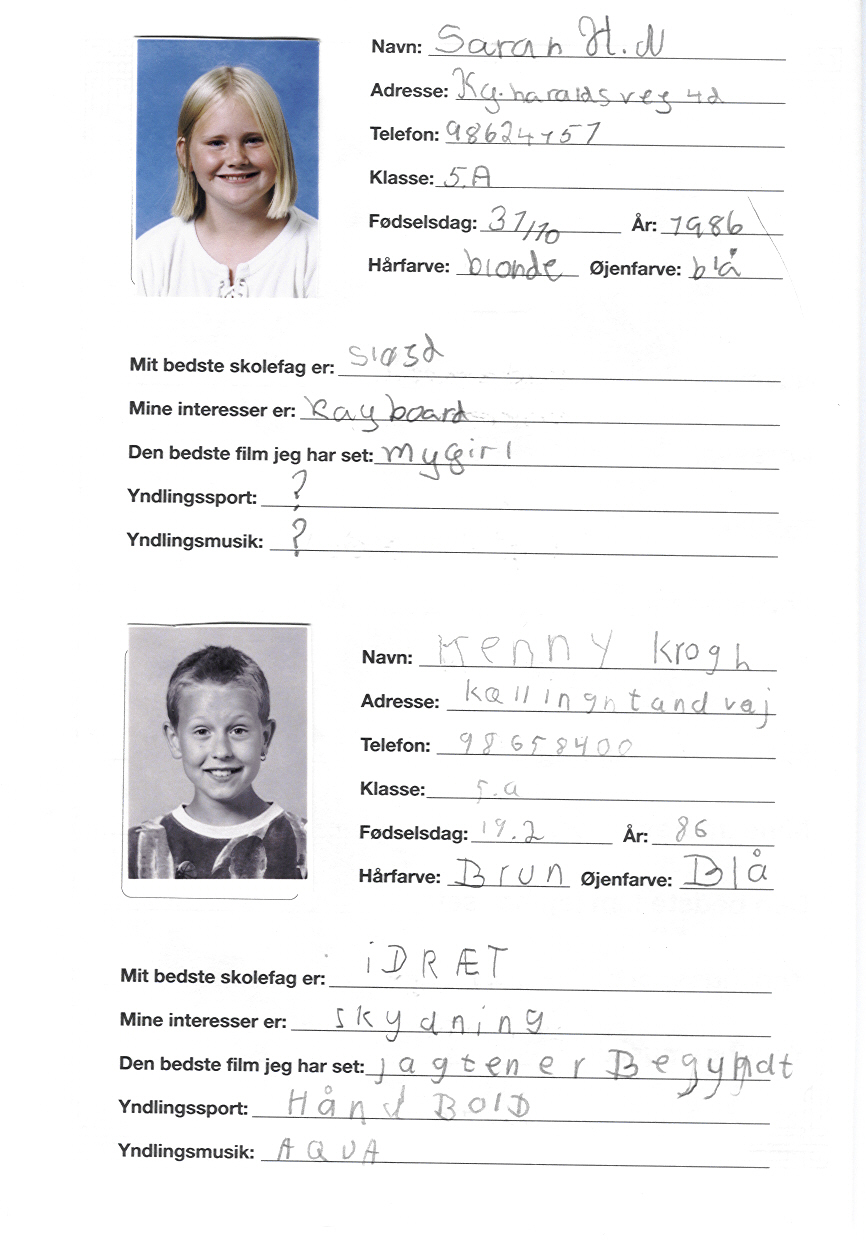 Navn: Sarah H.N
Adresse: Kg. haraldsveg 4d
Telefon:
Klasse: 5.A
Fødselsdag: 31/10 År: 1986
Hårfarve: blonde Øjenfarve: blå
Mit bedste skolefag er: sløjd
Mine interesser er: Kayboard
Den bedste film jeg har set: mygirl
Yndlingssport: ?
Yndlingsmusik: ?
Navn: Kenny Krogh
Adresse:
Telefon: 98658400
Klasse: 5.a
Fødselsdag: 19.2 År: 86
Hårfarve: Brun Øjenfarve: Blå
Mit bedste skolefag er: iDRÆT
Mine interesser er: skydning
Den bedste film jeg har set: jagten er Begyndt
Yndlingssport: HåndBolD
Yndlingsmusik: AQUA